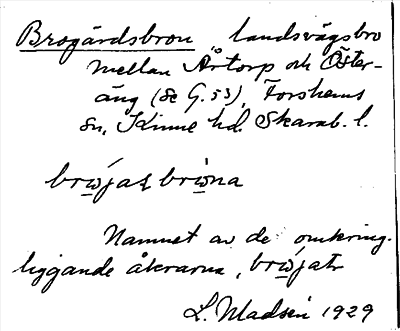 Brogårdsbron landsvägsbro
mellan Årtorp och Öster-
äng (se G.53), Forshems
sn, Kinne hd. Skarab. l.
brωjaʈ briωna
Namnet av de omkring-
liggande åkrarna, brωjatr
L. Madsén 1929